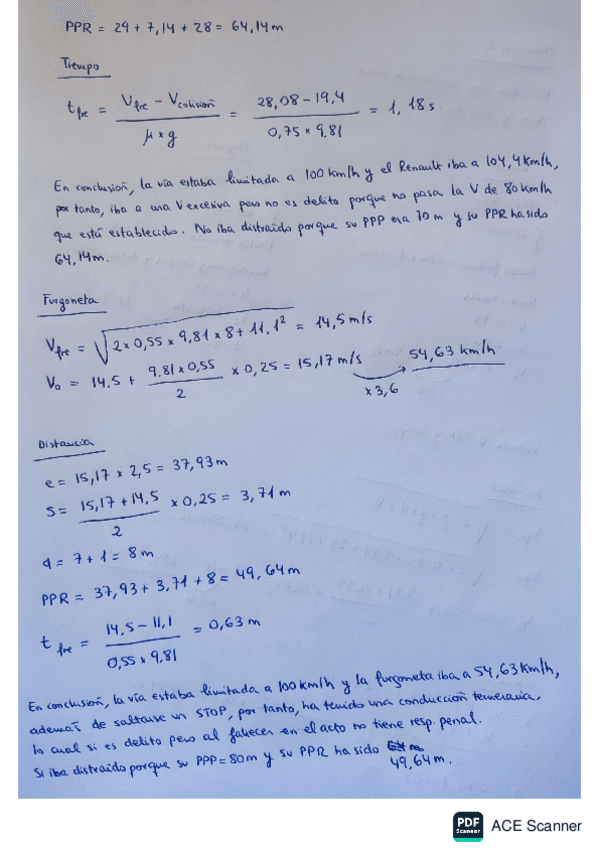 PPR = 29 + 7,14 + 28 = 64,14 m
Tiempo
t fre = (V fre - V colisión) / (μ × g) = (28,08 - 19,4) / (0,75 × 9,81) = 1,18 s
En conclusión, la vía estaba limitada a 100 km/h y el Renault iba a 104,4 km/h,
por tanto, iba a una V excesiva pero no es delito porque no pasa la V de 80 km/h
que está establecido. No iba distraído porque su PPP era 70 m y su PPR ha sido
64,14 m.
Furgoneta
V fre = √(2 × 0,55 × 9,81 × 8 + 11,1²) = 14,5 m/s
V₀ = 14,5 + (9,81 × 0,55) / 2 × 0,25 = 15,17 m/s × 3,6 → 54,63 km/h
Distancia
e = 15,17 × 2,5 = 37,93 m
S = (15,17 + 14,5) / 2 × 0,25 = 3,71 m
d = 7 + 1 = 8 m
PPR = 37,93 + 3,71 + 8 = 49,64 m
t fre = (14,5 - 11,1) / (0,55 × 9,81) = 0,63 m
En conclusión, la vía estaba limitada a 100 km/h y la furgoneta iba a 54,63 km/h,
además de saltarse un STOP, por tanto, ha tenido una conducción temeraria,
lo cual si es delito pero al fallecer en el acto no tiene resp. penal.
Si iba distraído porque su PPP = 80 m y su PPR ha sido
49,64 m.
PDF Scanner
ACE Scanner